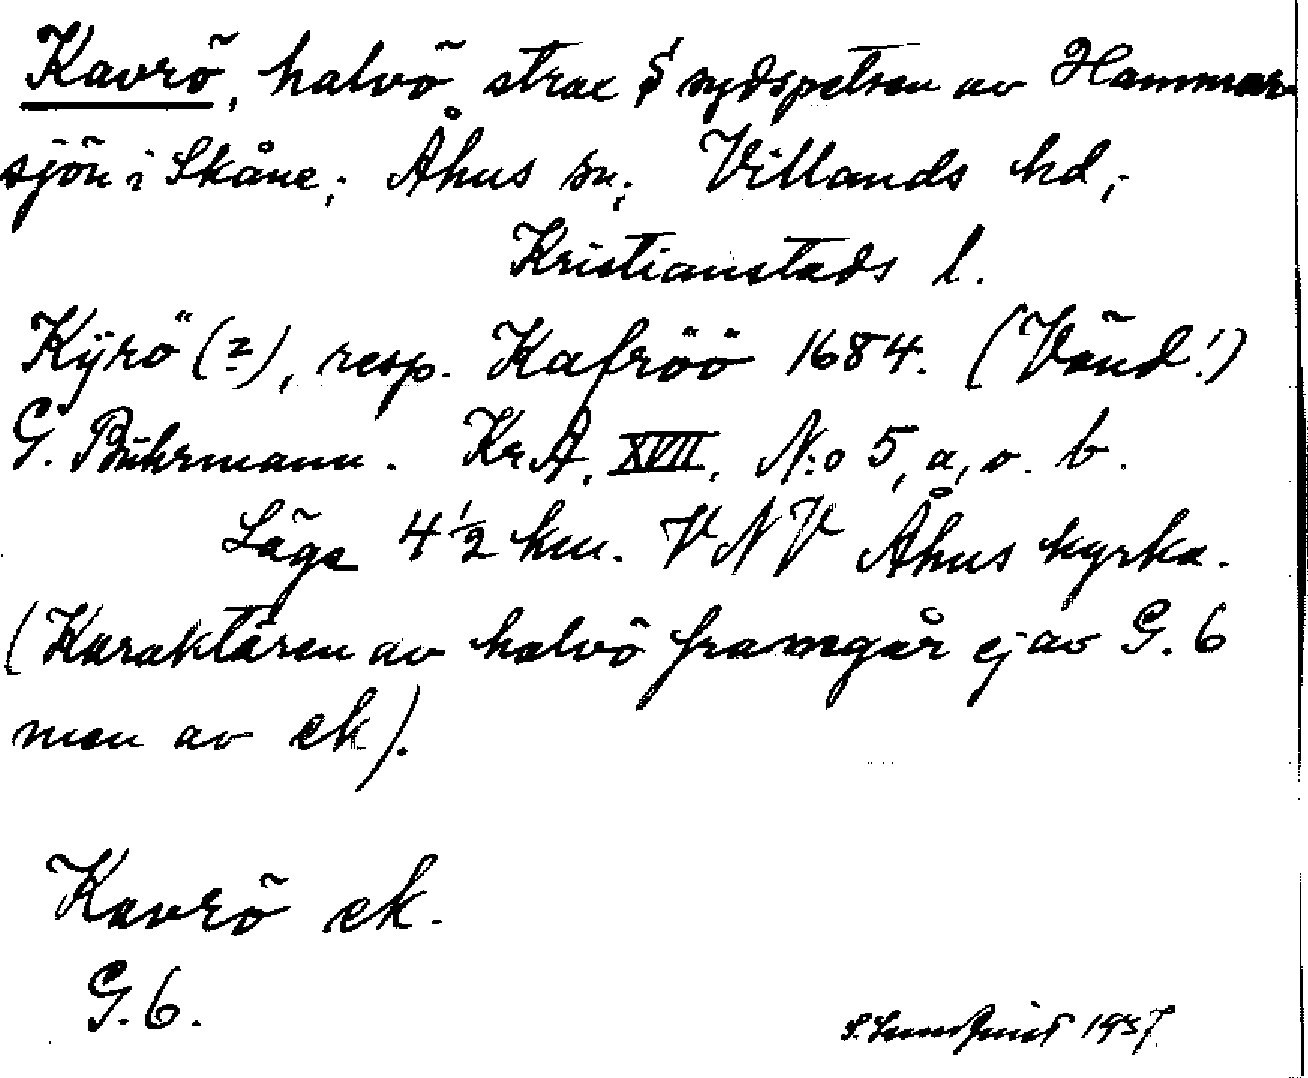 Kavrö, halvö strax S sydspetsen av Hammar-
sjön i Skåne; Åhus sn; Villands hd;
Kristianstads l.
Kÿrö (?), resp. Kafröö 1684. (Vänd!)
G. Buhrmann. KrA, XVII, N:o 5, a, o. b.
Läge 4 1/2 km. VNV Åhus kyrka.
(Karaktären av halvö framgår ej av G. 6
men av ek).
Kavrö ek.
G. 6.
1937